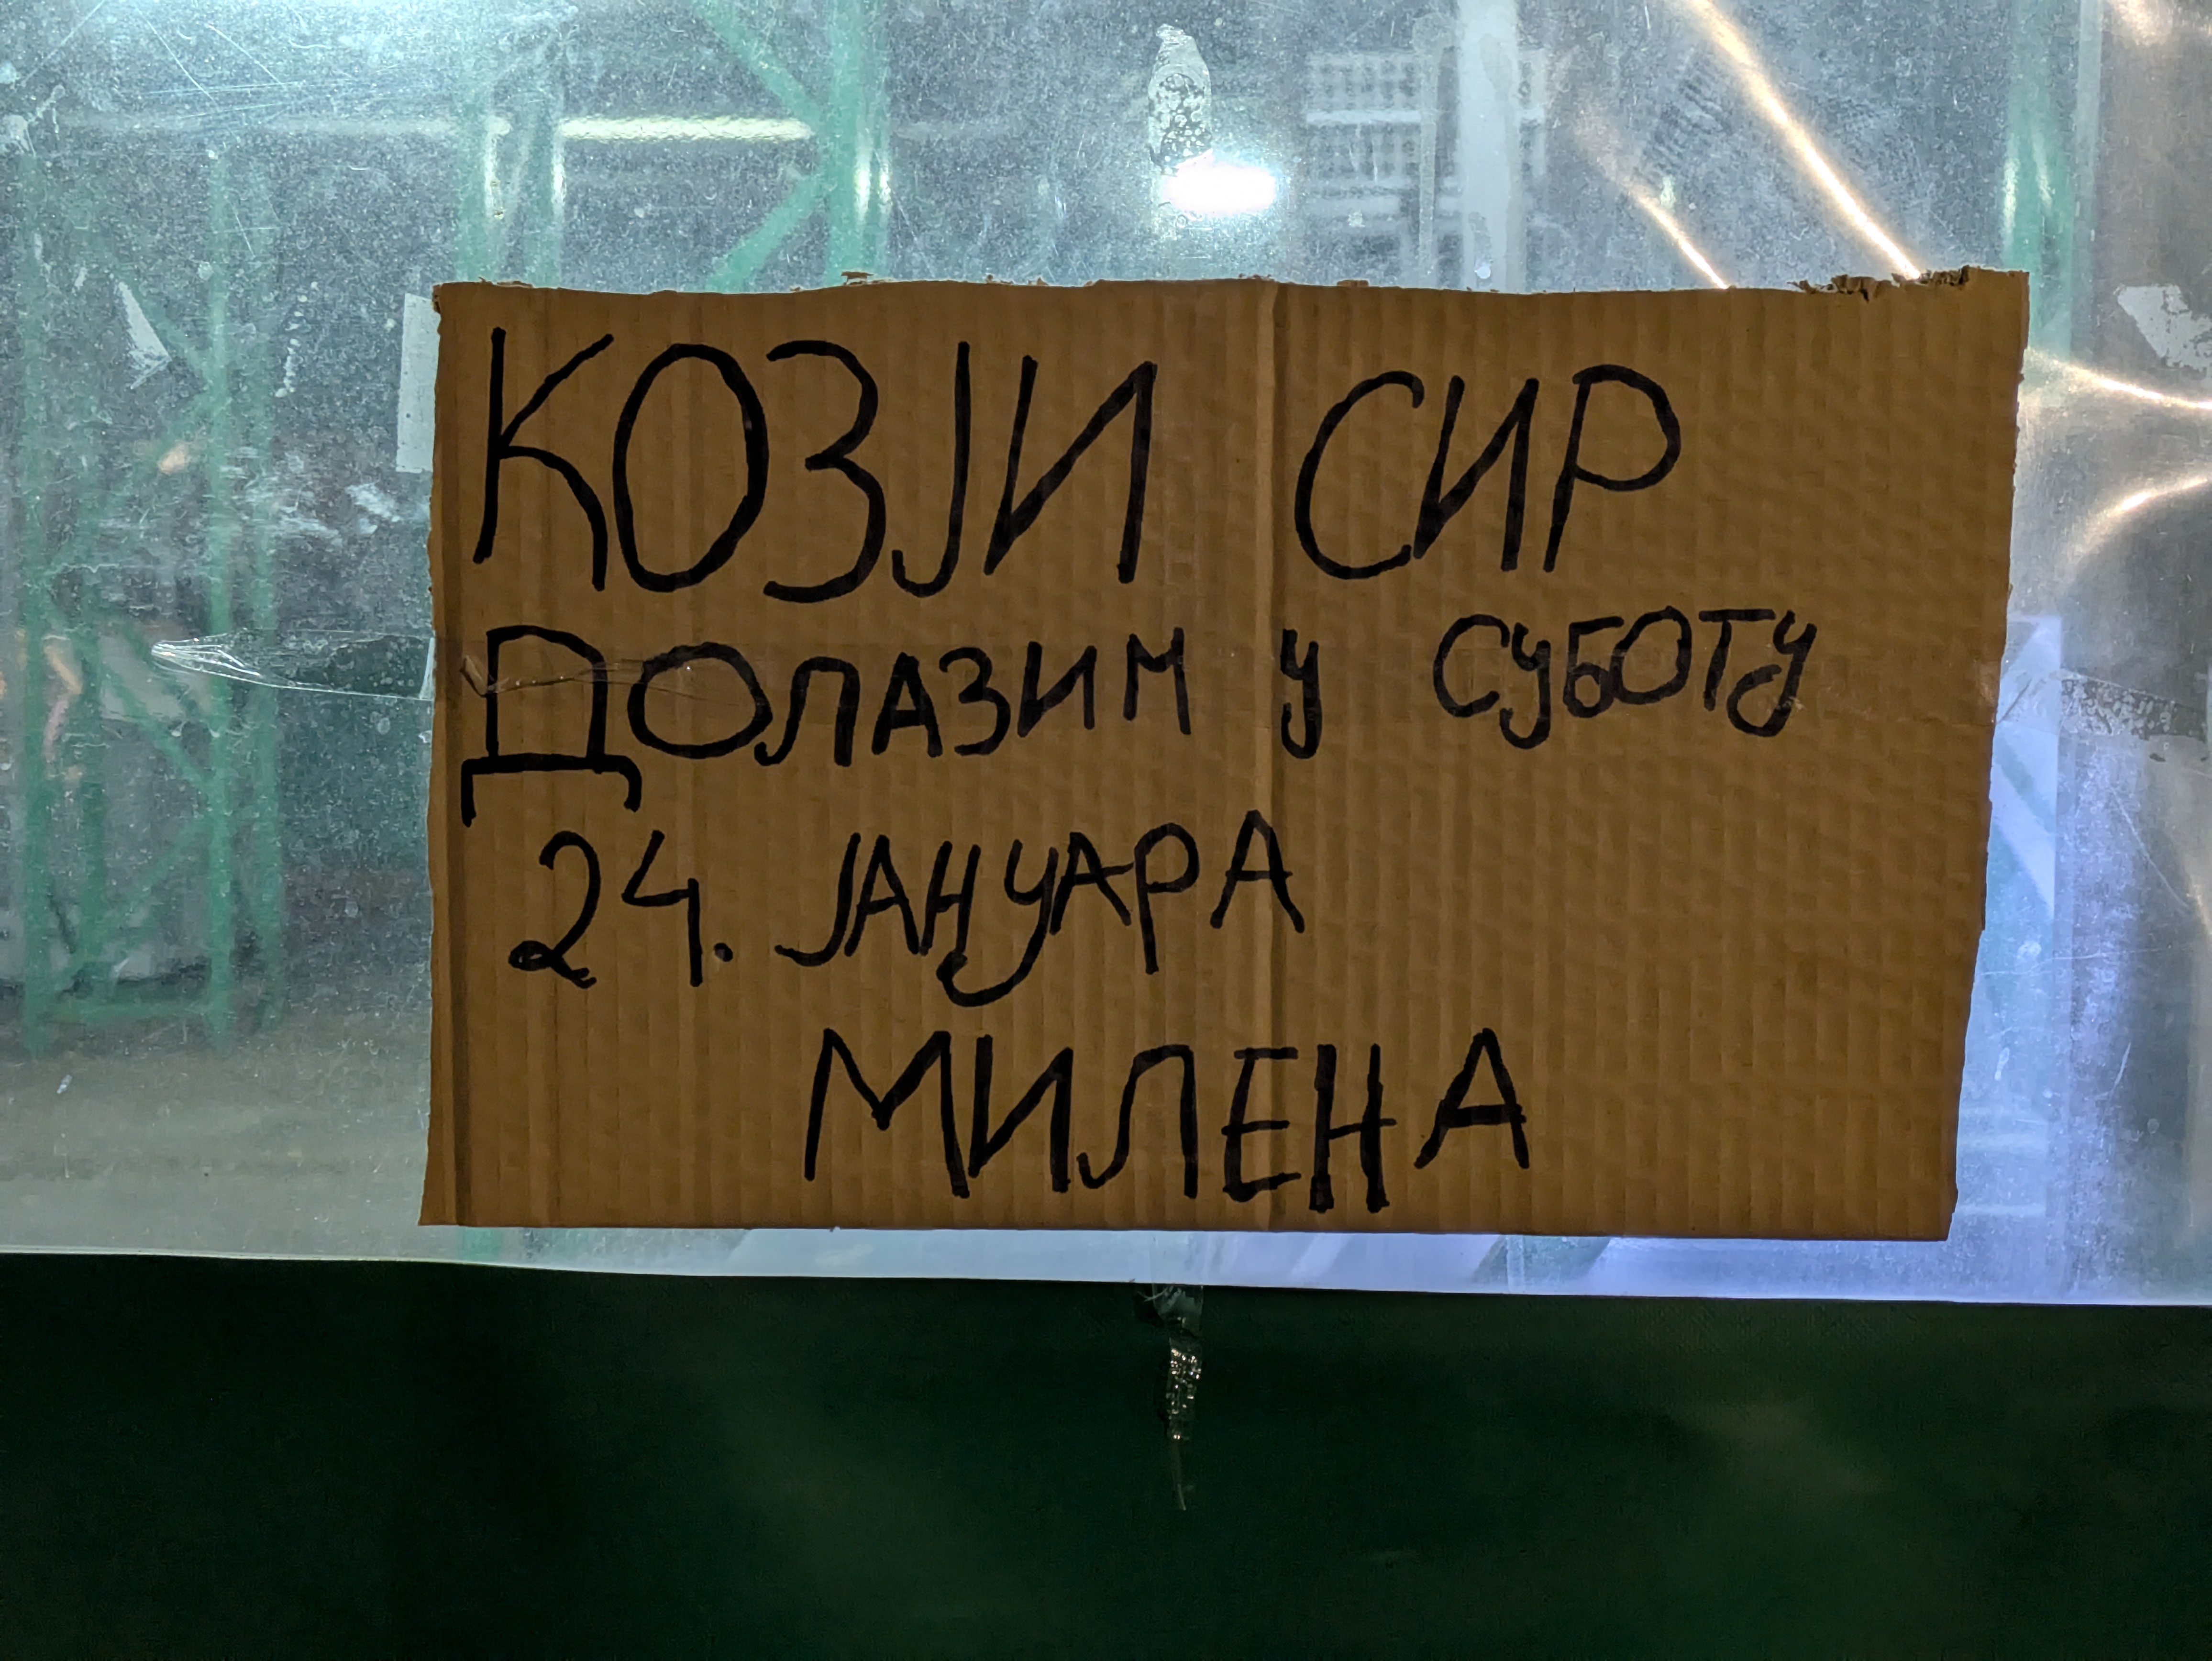 КОЗЈИ СИР
ДОЛАЗИМ У СУБОТУ
24. ЈАНУАРА
МИЛЕНА